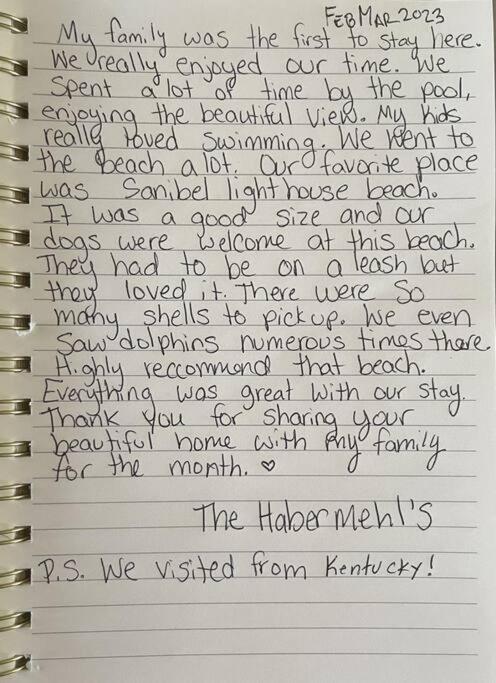 FEB MAR 2023
My family was the first to stay here.
We really enjoyed our time. We
spent a lot of time by the pool,
enjoying the beautiful view. My kids
really loved swimming. We went to
the beach a lot. Our favorite place
was Sanibel lighthouse beach.
It was a good size and our
dogs were welcome at this beach.
They had to be on a leash but
they loved it. There were so
many shells to pick up. We even
saw dolphins numerous times there.
Highly reccommend that beach.
Everything was great with our stay.
Thank you for sharing your
beautiful home with my family
for the month. ♡
The Habermehl's
P.S. We visited from Kentucky!